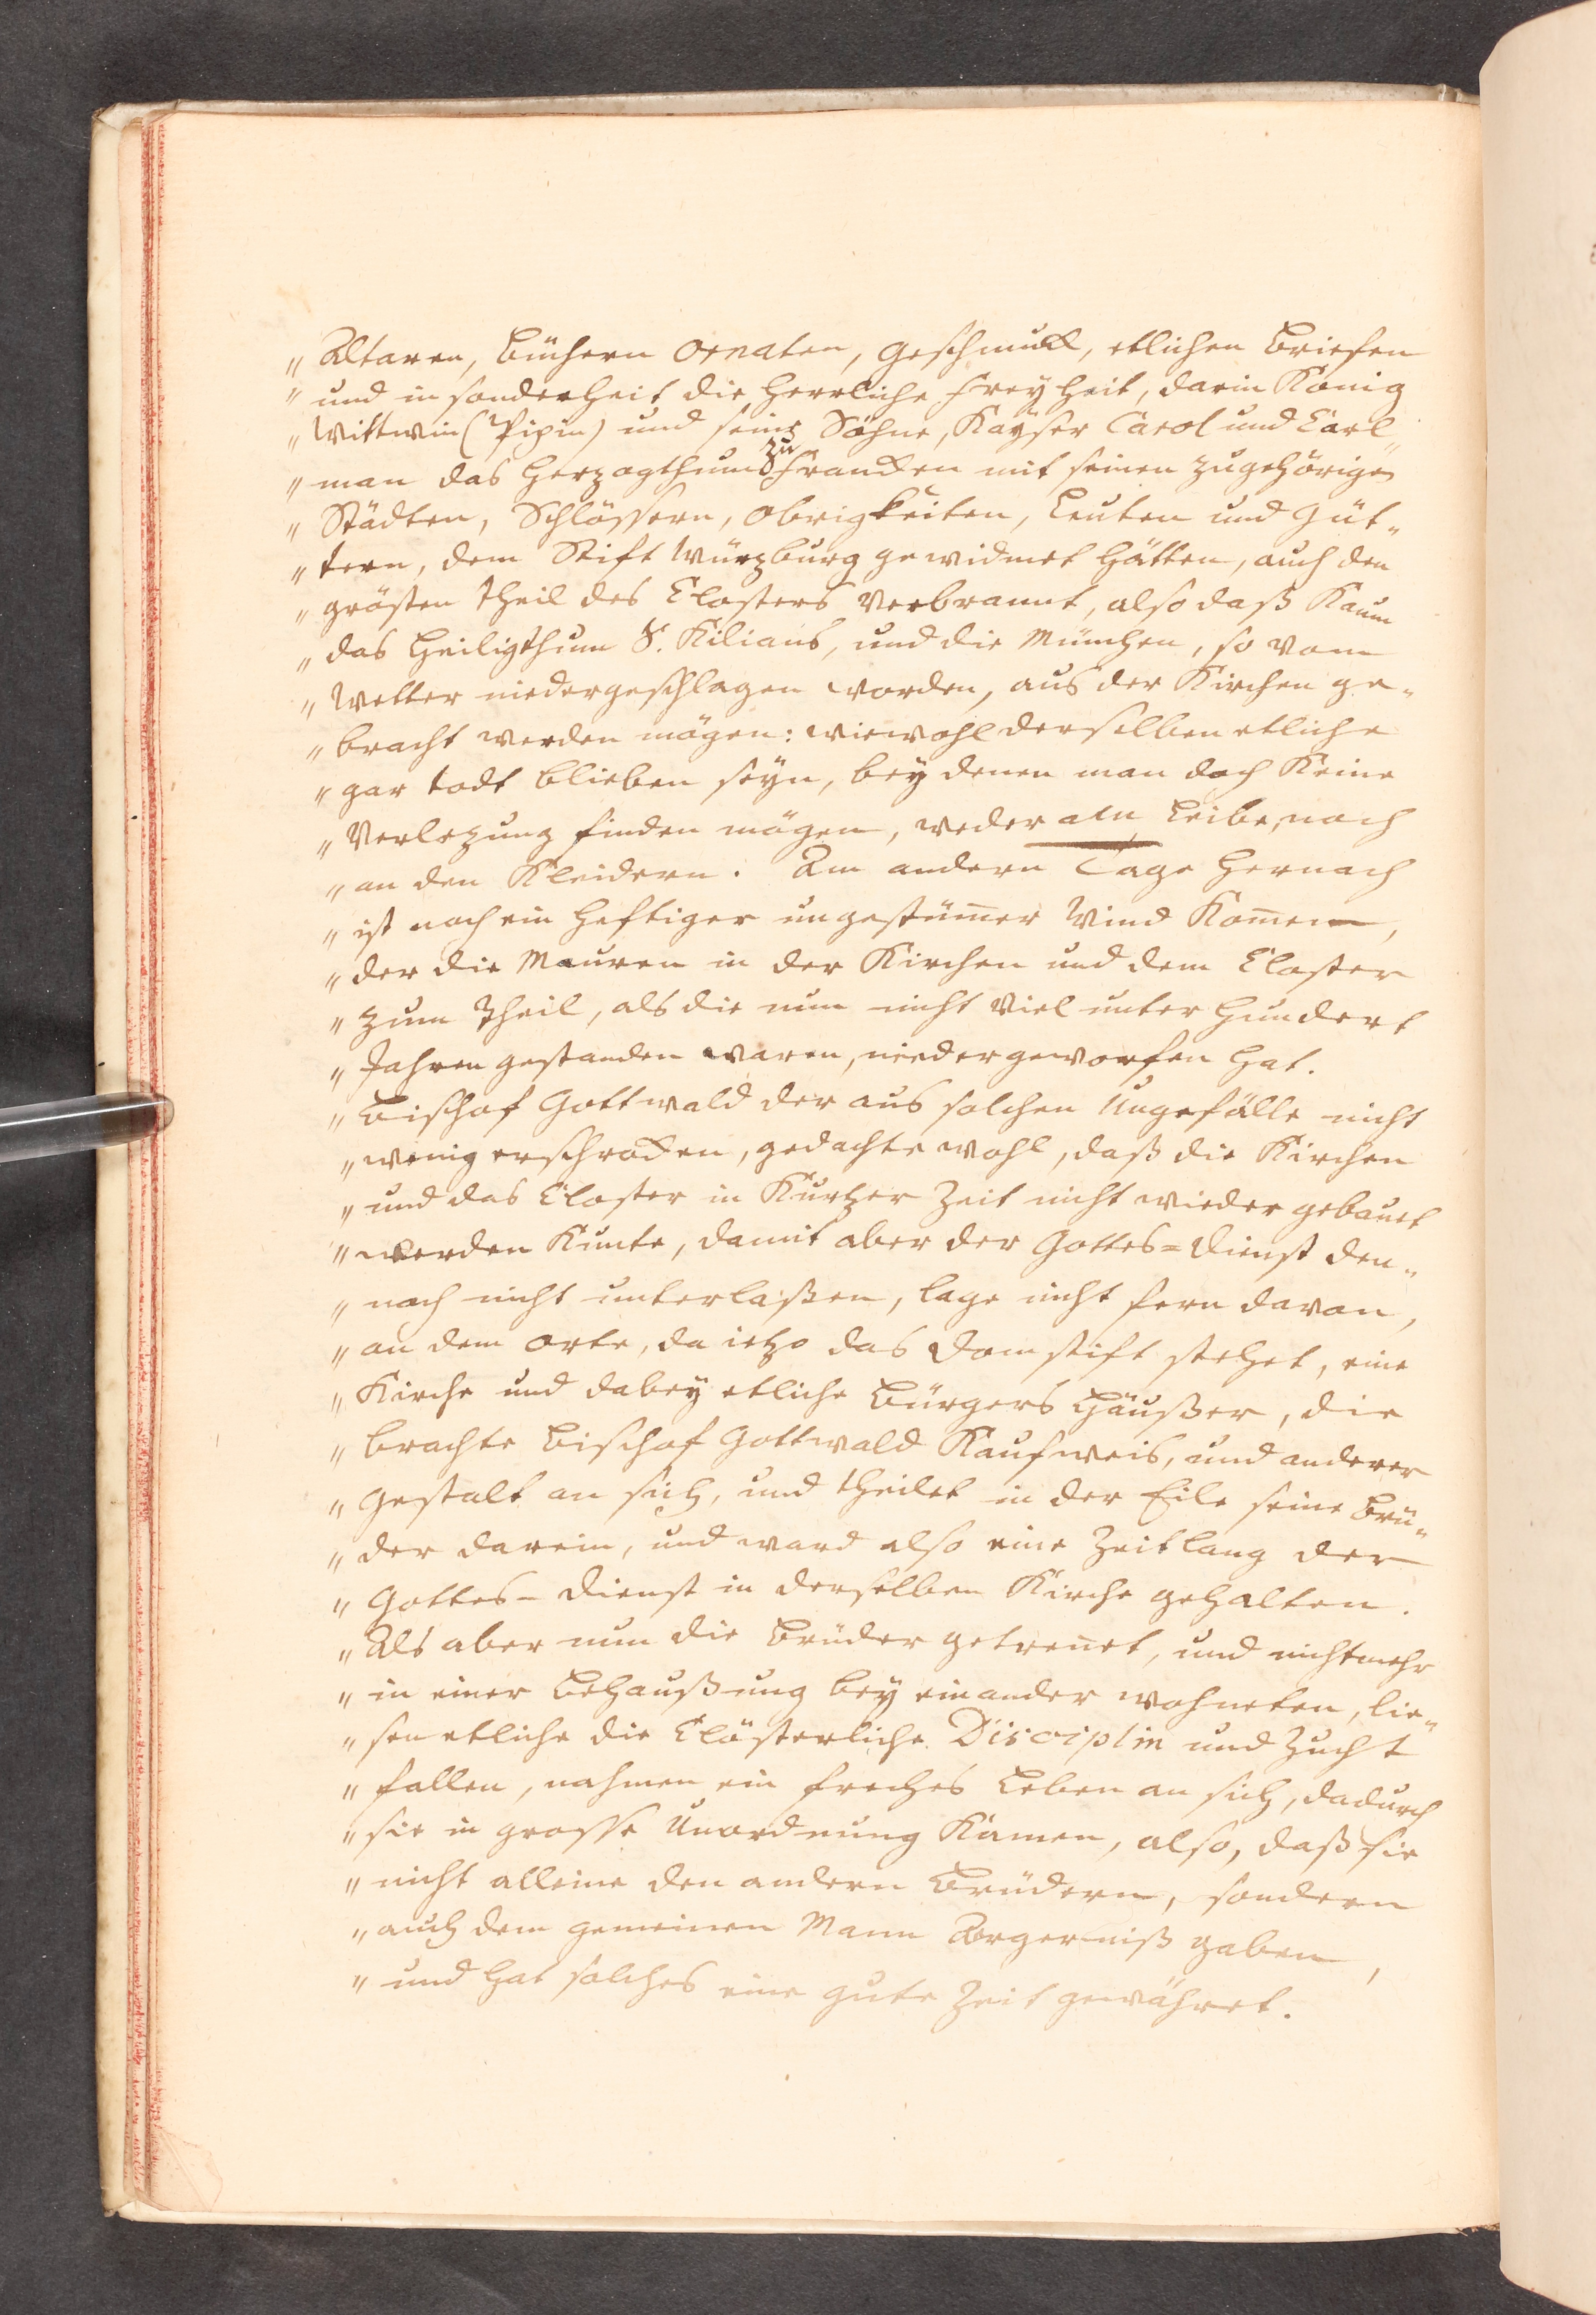 „ Altaren, Büchern Ornaten, Geschmuck, etlichen Briefen
„ und in sonderheit die Herrliche Freyheit, darin König
„ Wittwin (Pipin) und seine Söhne, Kayser Carol und Carl„
„ man das Herzogthum zu Francken mit seinen zugehörigen
„ Städten, Schlössern, Obrigkeiten, Leuten und Güt„
„ tern, dem Stift Würzburg gewidmet hätten, auch den
„ grösten Theil des Closters Verbrannt, also daß Kaum
„ das Heiligthum S. Kilians, und die München, so vom
„ Wetter niedergeschlagen worden, aus der Kirchen ge„
„ bracht werden mögen: wiewohl derselben etliche
„ gar todt blieben seyn, bey denen man doch Keine
„ Verlezung finden mögen, weder am Leibe, noch
„ an den Kleidern. Am andern Tage hernach
„ ist noch ein hefftiger ungestüm̄er Wind Kom̄en,
„ der die Mauren in der Kirchen und dem Closter
„ zum Theil, als die nun nicht Viel unter hundert
„ Jahren gestanden waren, niedergeworfen hat.
„ Bischof Gottwald der aus solchen Ungefälle nicht
„ wenig erschrocken, gedachte wohl, daß die Kirchen
„ und das Closter in Kurtzer Zeit nicht wieder gebauet
„ werden Kunte, damit aber der Gottes=Dienst den„
„ noch nicht unterlaßen, lage nicht fern davon,
„ an dem Orte, da ietzo das Domstift stehet, eine
„ Kirche und dabey etliche Bürgers Häußer, die
„ brachte Bischof Gottwald Kaufweis, und anderer
„ Gestalt an sich, und theilet in der Eile seine Brü„
„ der darein, und ward also eine Zeitlang der
„ Gottes-Dienst in derselben Kirche gehalten.
„ Als aber nun die Brüder getren̄et, und nicht mehr
„ in einer Behaußung bey einander wohneten, lie„
„ sen etliche die Clösterliche Disciplin und Zucht
„ fallen, nahmen ein freches Leben an sich, dadurch
„ sie in grosse Unordnung Kamen, also, daß sie
„ nicht alleine den andern Brüdern, sondern
„ auch dem gemeinen Mann Ärgerniß gaben,
„ und hat solches eine gute Zeit gewähret.